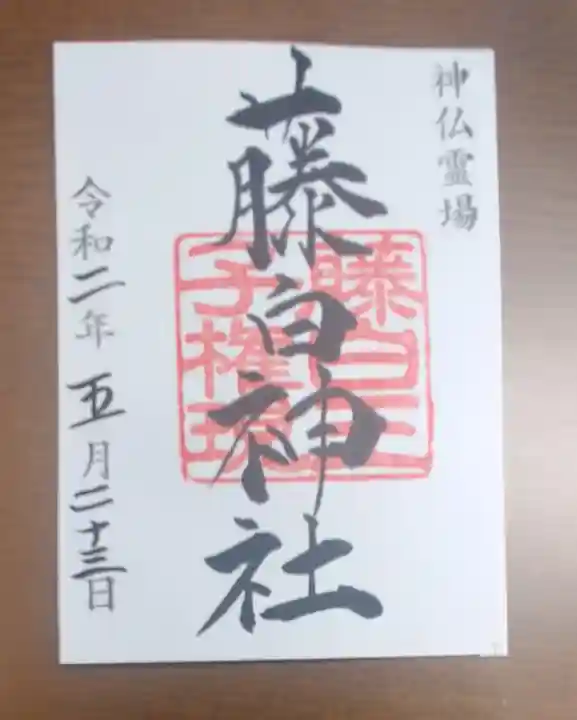 神仏霊場
藤白神社
藤白王
子権現
令和二年五月二十三日